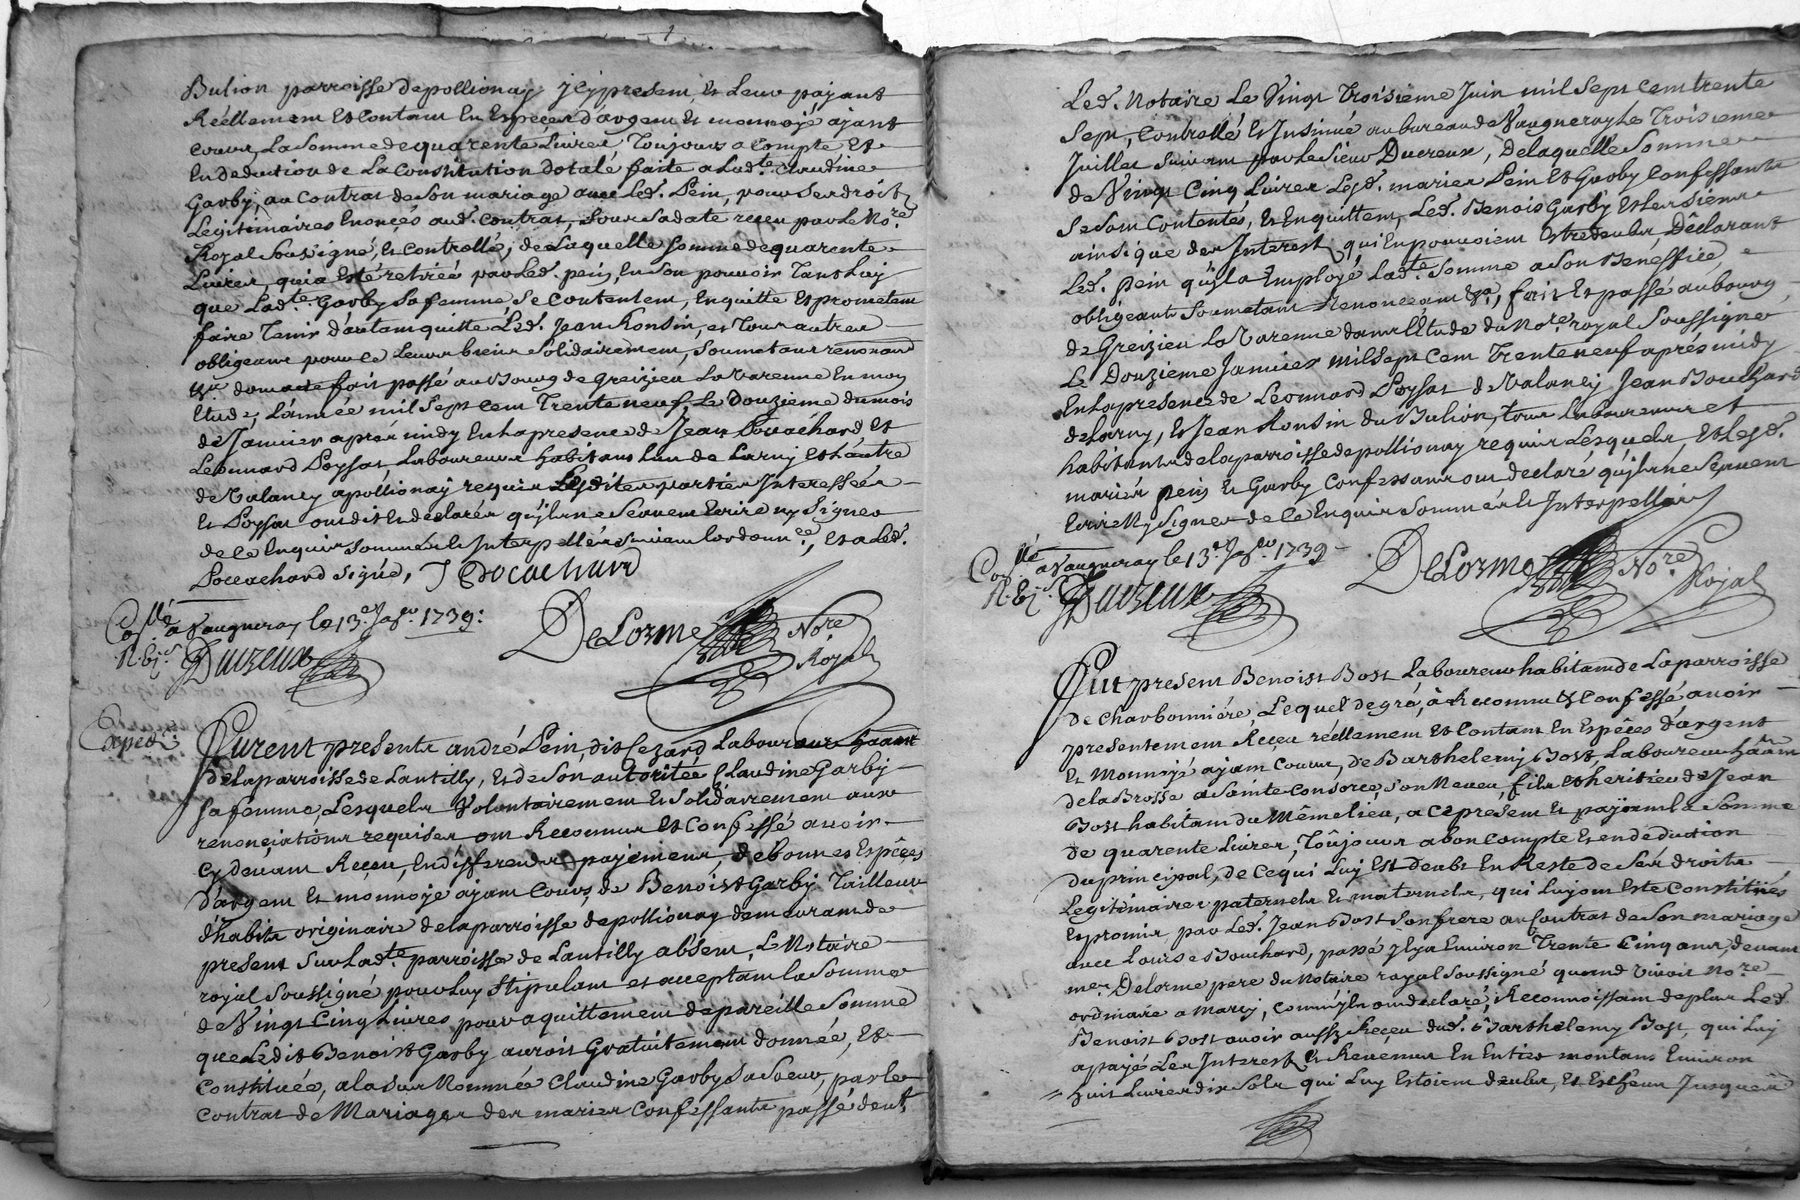 Bulion parroisse de pollionay jcy present, et de luy payant
Réellement et contant En Espèces d'argent et monnoye ajant
cours, La somme de quarente Livres, Toujours a Compte et
En deduction de La Constitution dotale faite a Lad.te Claudine
Garby, au Contrat de Son mariage avec Led. Pein, pour Ses droits
Legitimaires Enoncés aud. Contrat, Sous Sa date reçeu par Le No.re
Royal Soussigné, et Controllé, de Laquelle somme de quarente
Livres, qui a Esté retirée par Led. pein, En Son pouvoir Tant Luy
que Lad.te Garby Sa femme Se Contentent, En quitte et prometent
faire Tenir d'autant quitte Led. Jean Ronsin, et Tous autres
obligeant pour ce Leurs biens Solidairement, Soumetant renonçant
&a. dont acte fait passé au Bourg de Greizieu La Varenne En mon
Etude, L'année mil Sept cent Trente neuf, Le Douzième du mois
de Janvier après midy En La presence de Jean Pocachard et
Leonnard Poyssat, Laboureurs habitans L'un de Larny et L'autre
de Valancy a pollionay requis Lesdites parties Interessées
et Poyssat ont dit et declarés qu'jls ne Scavent Ecrire ny Signer
de Ce Enquis Sommés et Interpellés Suivant L'ordonn.ce, et a Led.
Pocachard Signé, J Pocachard
Co.llé a Vaugneray le 13.e Ja.er 1739:
R. 6 j.s Ducreux
DeLorme No.re
Royal
Exped.
Furent presents andré Pein, dit Cezard Laboureur ha.ant
de La parroisse de Lantilly, et de Son autorité Claudine Garby
Sa femme, Lesquels Volontairement et Solidairement aux
renonciations requises ont Reconnu et Confessé avoir
Cy devant Reçeu, En differends payements, de bonnes Espèces
d'argent et monnoye ajant Cours, de Benoist Garby Tailleur
d'habits originaire de la parroisse de pollionay demeurant de
present Sur Lad.te parroisse de Lantilly absent, Le Notaire
royal Soussigné pour Luy Stipulant et acceptant La Somme
de Vingt Cinq Livres pour aquittement de pareille Somme
que Ledit Benoist Garby auroit Gratuitement donnée, et
Constituée, a la Sus Nommée Claudine Garby Sa Soeur, par Le
Contrat de Mariage des mariés Confessants passé devt.
Led. Notaire Le Vingt Troisième Juin mil Sept Cent trente
Sept, Controllé et Insinué au bureau de Vaugneray Le Troisième
Juillet Suivant par Le Sieur Ducreux, De laquelle Somme
de Vingt Cinq Livres Lesd. mariés Pein et Garby Confessants
Se Sont Contentés, et En quittent, Led. Benoist Garby et Les Siens
ainsi que des Interest qui En pouvoient Estre deubs, Déclarant
Led. Pein qu'jl a Employé Lad.te Somme a Son Beneffice,
obligeants Soumetant Renonceant &a, fait et passé au bourg
de Greizieu La Varenne dans L'Etude du No.re royal Soussigné
Le Douzième Janvier mil Sept Cent Trente neuf après midy
En La presence de Leonnard Poyssat de Valancy Jean Bouchard
de Larny, et Jean Ronsin du Bulion, tous Laboureurs et
habitants de la parroisse de pollionay requis Lesquels, et Lesd.
mariés pein et Garby Confessants ont declaré qu'jls ne Scavent
Ecrire Ny Signer de Ce Enquis Sommés et Interpellés
Co.llé a Vaugneray le 13.e Ja.er 1739
R. 6 j.s Ducreux
DeLorme No.re
Royal
Fut present Benoist Bost Laboureur habitant de La parroisse
de Charbonnière, Lequel de gré, a Reconnu et Confessé avoir
presentement Reçeu réellement et Contant En Espèces d'argent
et Monnoyé ajant Cours, de Barthelemy Bost, Laboureur ha.ant
de la Brosse a Sainte Consorce, Son Neveu, fils et heritier de Jean
Bost habitant du Même lieu, a Ce present et payant La Somme
de quarente Livres, Toûjours a bon Compte et en déduction
du principal, de Ce qui Luy Est deubt En Reste de Ses droits
Legitimaires paternels et maternels, qui Luy ont Esté Constitués
et promis par Led. Jean Bost Son frere au Contrat de Son mariage
avec Louise Bouchard, passé jl y a Environ Trente Cinq ans, devant
me. Delorme pere du Notaire royal Soussigné quand vivoit No.re
ordinaire a Marcy, Comme jls ont declaré, Reconnoissant de plus Led.
Benoist Bost avoir aussy Reçeu dud. Barthelemy Bost, qui Luy
a payé Les Interest et Revenus En Entier montans Environ
huit Livres dix Sols qui Luy Estoient deubs, et Escheus Jusques a